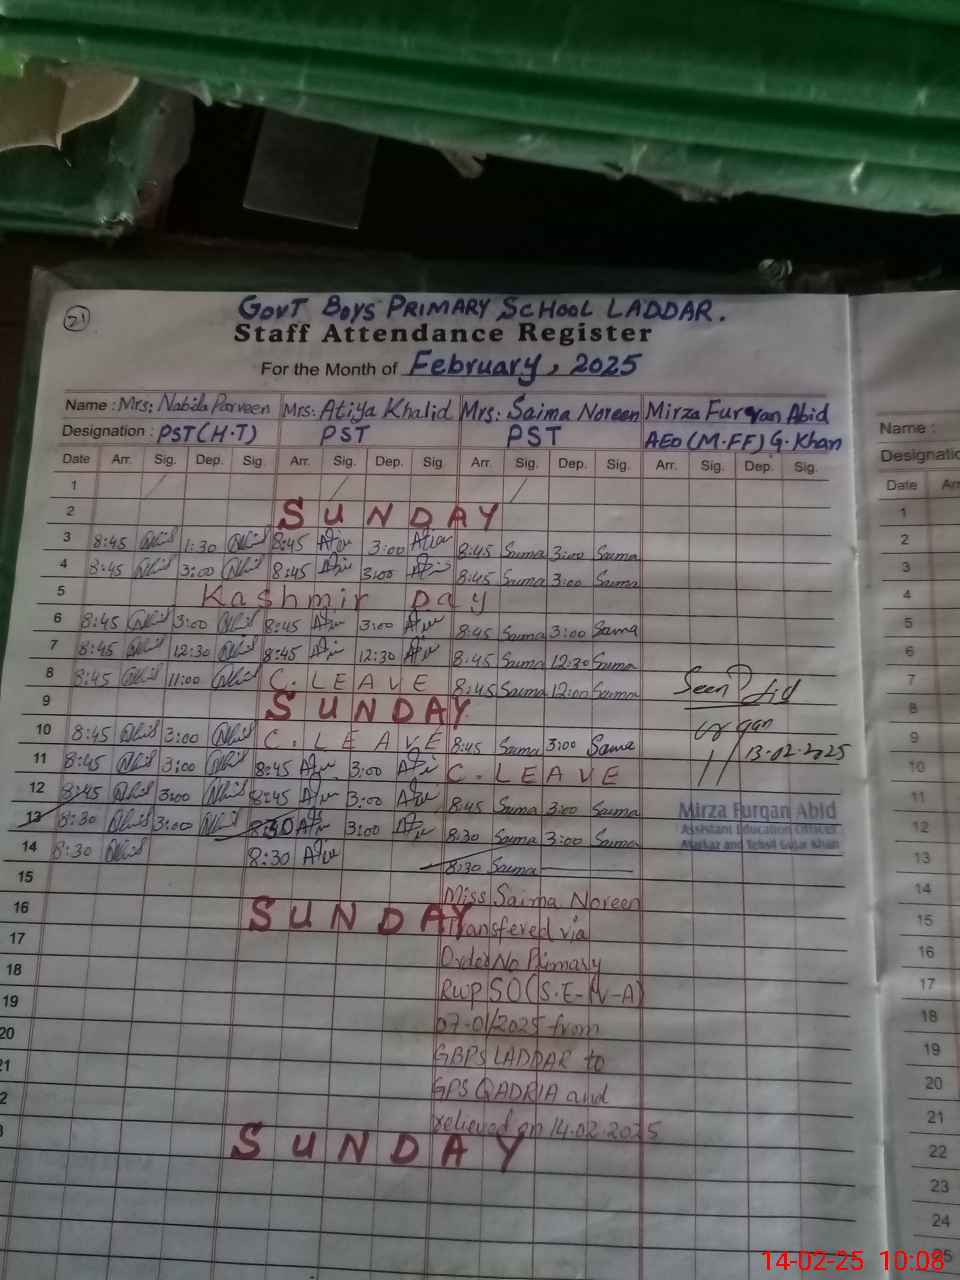 21
GovT Boys PRIMARY SCHOOL LADDAR.
Staff Attendance Register
For the Month of February, 2025
Name : Mrs: Nabila Parveen Mrs: Atiya Khalid Mrs: Saima Noreen Mirza Furqan Abid
Designation : PST(H.T) PST PST AEO (M.FF) G. Khan
Date Arr. Sig. Dep. Sig. Arr. Sig. Dep. Sig. Arr. Sig. Dep. Sig. Arr. Sig. Dep. Sig.
1
2 SUNDAY
3 8:45 1:30 8:45 3:00 8:45 Saima 3:00 Saima
4 8:45 3:00 8:45 3:00 8:45 Saima 3:00 Saima
5 Kashmir Day
6 8:45 3:00 8:45 3:00 8:45 Saima 3:00 Saima
7 8:45 12:30 8:45 12:30 8:45 Saima 12:30 Saima
8 8:45 11:00 C. LEAVE 8:45 Saima 12:00 Saima
Seen
9 SUNDAY
10 8:45 3:00 C. LEAVE 8:45 Saima 3:00 Saima
13-02-2025
11 8:45 3:00 8:45 3:00 C. LEAVE
12 8:45 3:00 8:45 3:00 8:45 Saima 3:00 Saima
Mirza Furqan Abid
Assistant Education Officer
Markaz and Tehsil Gujar Khan
13 8:30 3:00 8:30 3:00 8:30 Saima 3:00 Saima
14 8:30 8:30 8:30 Saima
15
Miss Saima Noreen
16 SUNDAY
Transfered via
17
Order No Primary
18
RWP SO(S.E-IV-A)
19
07-01/2025 from
20
GBPS LADDAR to
21
GPS QADRIA and
2
relieved on 14-02-2025
3 SUNDAY
Name :
Designatio
Date Arr
1
2
3
4
5
6
7
8
9
10
11
12
13
14
15
16
17
18
19
20
21
22
23
24
25
14-02-25 10:08